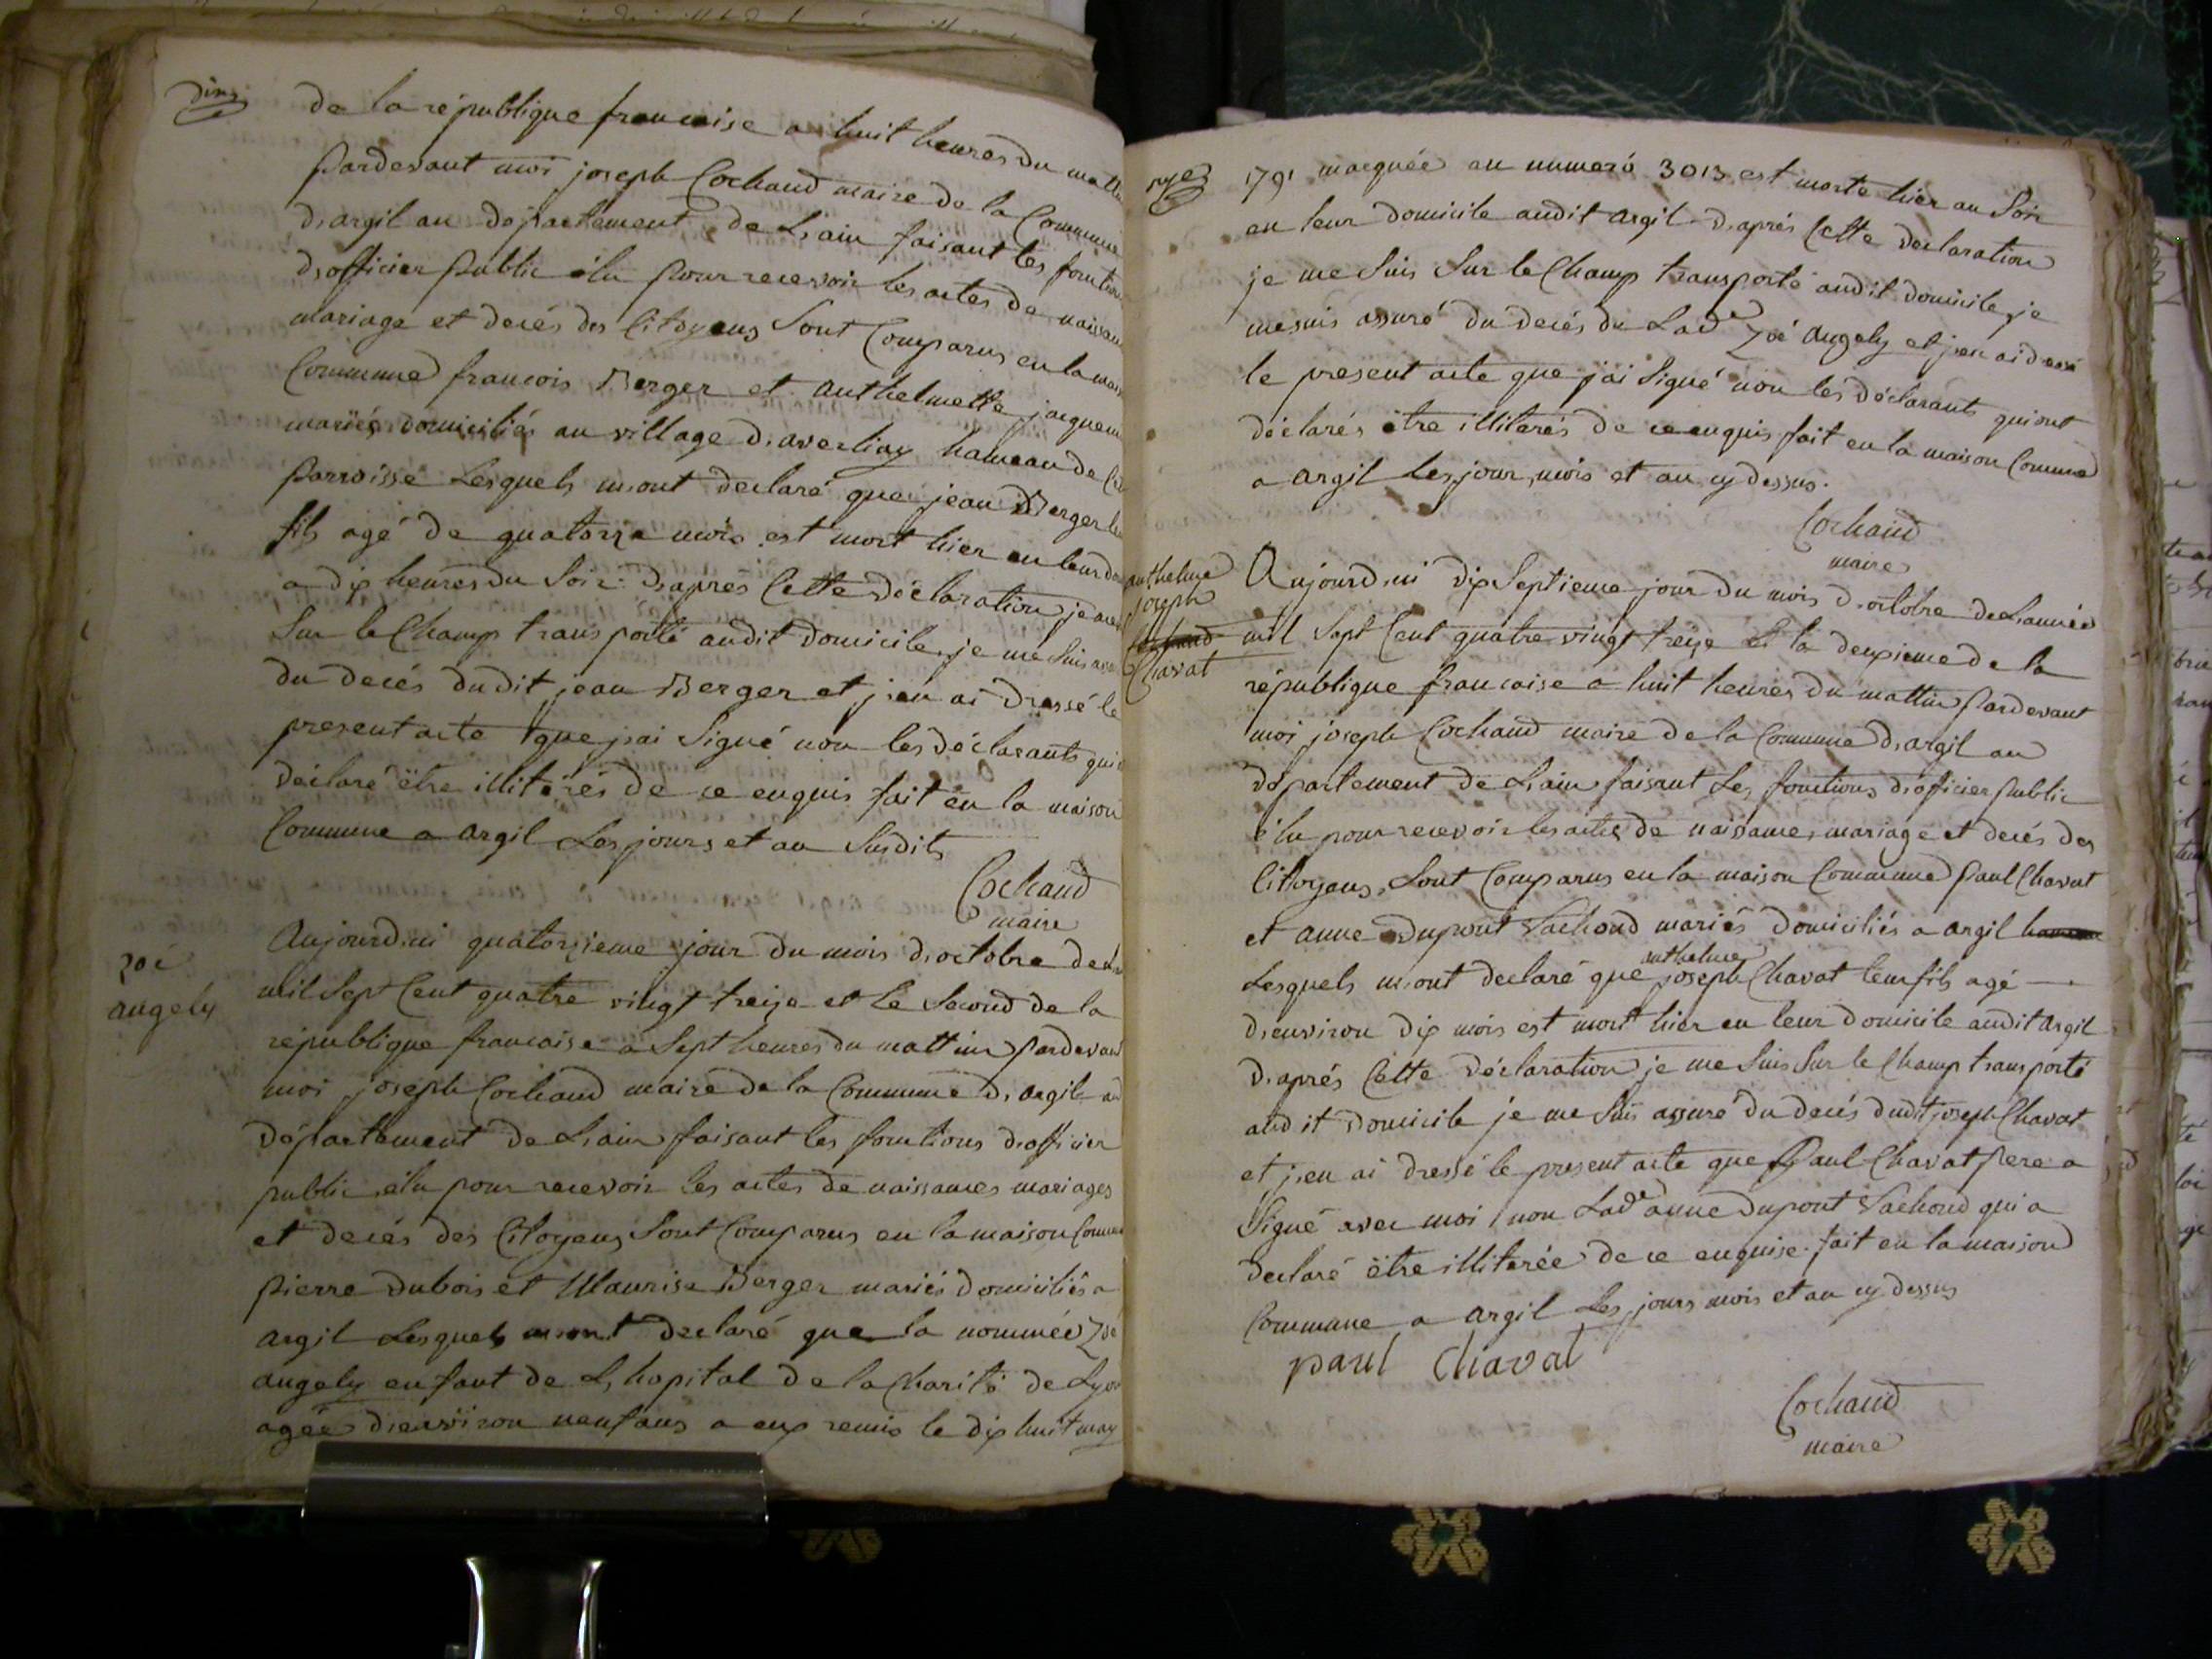 de la république francoise a huit heures du matt
pardevant moi joseph Cochaud maire de la Commune
d,argil au département de L,ain faisant les fonction
d,officier public élu pour recevoir les actes de naissan
mariage et decés des Citoyens sont Comparus en la mais
Commune francois Berger et anthelmette jacquem
mariés domiciliés au village d,averliay hameau de
parroisse Lesquels m,ont declaré que jean Berger
fils agé de quatorze mois est mort hier en leur do
a dix heures du soir. d,aprés Cette déclaration je me
sur le Champ transporté audit domicile, je me suis
du decés dudit jean Berger et j,en ai dressé le
present acte que j'ai signé non les déclarants qui
déclaré être illitérés de ce enquis fait en la maison
Commune a argil Les jours et an susdits
Cochaud
maire
zoé
angely
Aujourd,ui quatorzieme jour du mois d,octobre de
mil sept Cent quatre vingt treize et le second de la
république francaise a sept heures du mattin pardevant
moi joseph Cochaud maire de la Commune d,argil au
département de L,ain faisant les fonctions d,officier
public élu pour recevoir les actes de naissances mariages
et decés des Citoyens sont Comparus en la maison Commu
pierre dubois et Maurise Berger mariés domiciliés a
argil Lesquels m,ont declaré que la nommée Zoé
angely enfant de L,hopital de la Charité de Lyon
agée d,environ neuf ans a eux remis le dix huit may
1791 marquée au numero 3013 est morte hier au soir
en leur domicile audit argil. d,aprés Cette declaration
je me suis sur le Champ transporté audit domicile, je
me suis assuré du decés de Lade Zoé angely et j,en ai dressé
le present acte que j'ai signé non les déclarants qui ont
déclarés être illiterés de ce enquis fait en la maison Commune
a argil les jour, mois et an cy dessus.
Cochaud
maire
anthelme
joseph
Chavat
Aujourd,ui dix septieme jour du mois d,octobre de L,année
mil sept Cent quatre vingt treize et la deuxieme de la
république francaise a huit heures du mattin pardevant
moi joseph Cochaud maire de la Commune d,argil au
département de L,ain faisant Les fonctions d,officier public
élu pour recevoir les actes de naissance, mariage et decés des
Citoyens, sont Comparus en la maison Commune paul Chavat
et anne dupont Vachoud mariés domiciliés a argil
Lesquels m,ont declaré que anthelme joseph Chavat leur fils agé
d,environ dix mois est mort hier en leur domicile audit argil
d,aprés Cette déclaration je me suis sur le Champ transporté
audit domicile je me suis assuré du decés dudit joseph Chavat
et j,en ai dressé le present acte que paul Chavat pere a
signé avec moi non Lade anne dupont Vachoud qui a
declaré être illiterée de ce enquise fait en la maison
Commune a argil Les jours mois et an cy dessus
paul Chavat
Cochaud
maire